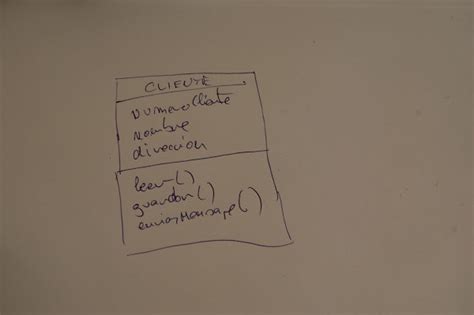 CLIENTE
numeroCliente
nombre
direccion
leer()
guardar()
enviarMensaje()